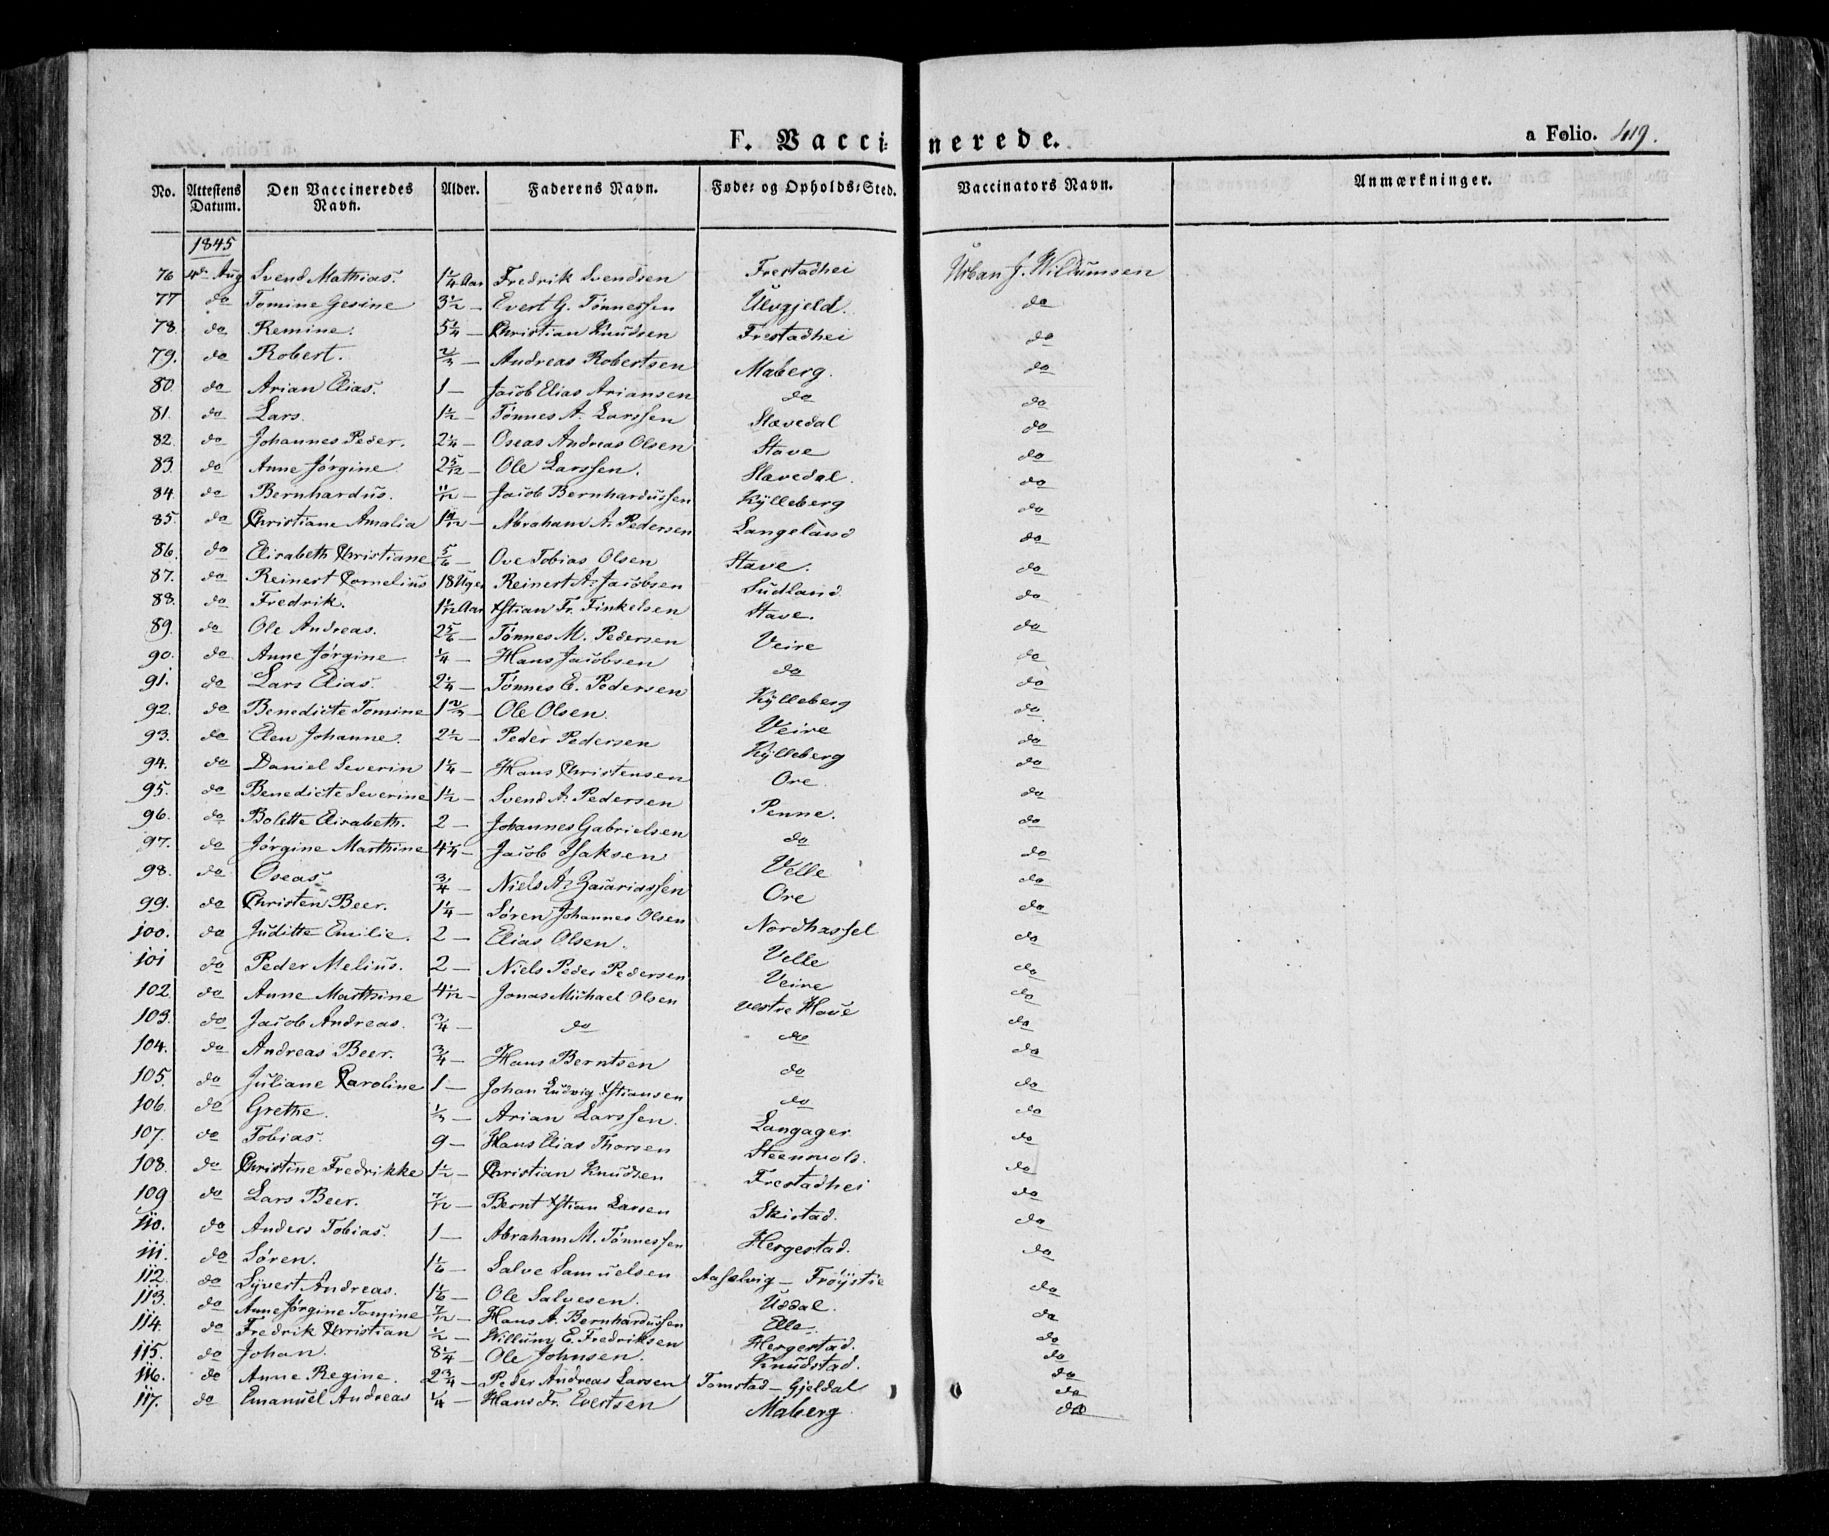 F. Vaccinerede.
a Folio. 419.
No. Attestens Datum. Den Vaccineredes Navn. Alder. Faderens Navn. Føde- og Opholds-Sted. Vaccinators Navn. Anmærkninger.
1845
76 4de Aug Svend Mathias. 1 1/4 Aar Fredrik Svendsen Frestadhei Urban J. Willumsen
77 do Tomine Gesine 3 1/2 — Evert G. Tønnessen Ulvgjeld. do
78. do Remine. 5 1/4 — Christian Knudsen Frestadhei do
79. do Robert. 2/3 — Andreas Robertsen Maberg. do
80 do Arian Elias. 1 — Jacob Elias Ariansen do do
81. do Lars. 1 1/2 — Tønnes A. Larssen Stavedal do
82. do Johannes Peder. 2 1/4 — Oseas Andreas Olsen Stave do
83. do Anne Jørgine 2 5/12 — Ole Larssen. Stavedal. do
84. do Bernhardus. 11/12 — Jacob Bernhardussen Kÿlleberg do
85. do Christiane Amalia — Abraham A. Pedersen Langeland do
86. do Elisabeth Christiane 5/6 — Ove Tobias Olsen Stave. do
87. do Reinert Cornelius 18 Uger Reinert A. Jacobsen Sudland do
88. do Fredrik. 1 1/12 Aar Xstian Fr. Finkelsen Stave. do
89. do Ole Andreas. 2 5/6 — Tønnes M. Pedersen Veire do
90. do Anne Jørgine 1/4 — Hans Jacobsen do do
91. do Lars Elias. 2 1/4 — Tønnes E. Pedersen Kÿlleberg do
92. do Benedicte Tomine 1 2/3 — Ole Olsen. Veire do
93. do Elen Johanne. 2 1/2 — Peder Pedersen Kÿlleberg do
94. do Daniel Severin 1 1/4 — Hans Christensen Ore do
95. do Benedicte Severine 1 1/2 — Svend A. Pedersen Penne. do
96. do Bolette Elisabeth. 2 — Johannes Gabrielsen do do
97. do Jørgine Marthine 4 1/4 — Jacob Isaksen Velle do
98. do Oseas 3/4 — Niels A. Zacariassen Ore do
99. do Christen Beer. 1 1/4 — Søren Johannes Olsen Nordhassel do
100. do Juditte Emilie. 2 — Elias Olsen. Velle do
101 do Peder Melius. 2 — Niels Peder Pedersen Veire do
102. do Anne Marthine 4 1/12 — Jonas Michael Olsen vestre Haue do
103. do Jacob Andreas. 3/4 — do do do
104. do Andreas Beer. 3/4 — Hans Berntsen do do
105. do Juliane Caroline 1 — Johan Ludvig Xstiansen do do
106. do Grethe. 1/3 — Arian Larssen. Langager do
107. do Tobias. 9 — Hans Elias Thorsen do
108. do Christine Fredrikke 1 1/2 — Christian Knudsen Frestadhei do
109 do Lars Beer. 7/12 — Bernt Xstian Larsen Skistad. do
110. do Anders Tobias. 1 — Abraham M. Tønnessen Hergestad. do
111. do Søren. 1 1/6 — Salve Samuelsen Aaselvig — do
112. do Sÿvert Andreas. 1 1/6 — Ole Salvesen. Uddal. do
113. do Anne Jørgine Tomine 7/12 — Hans A. Bernhardussen Elle do
114. do Fredrik Christian 1/2 — Willum E. Fredriksen Hergestad. do
115. do Johan. 8 1/4 — Ole Johnsen. Knudstad. do
116. do Anne Regine. 2 3/4 — Peder Andreas Larsen Tomstad — Gjeldal do
117. do Emanuel Andreas 1/4 — Hans Fr. Evertsen Maberg do